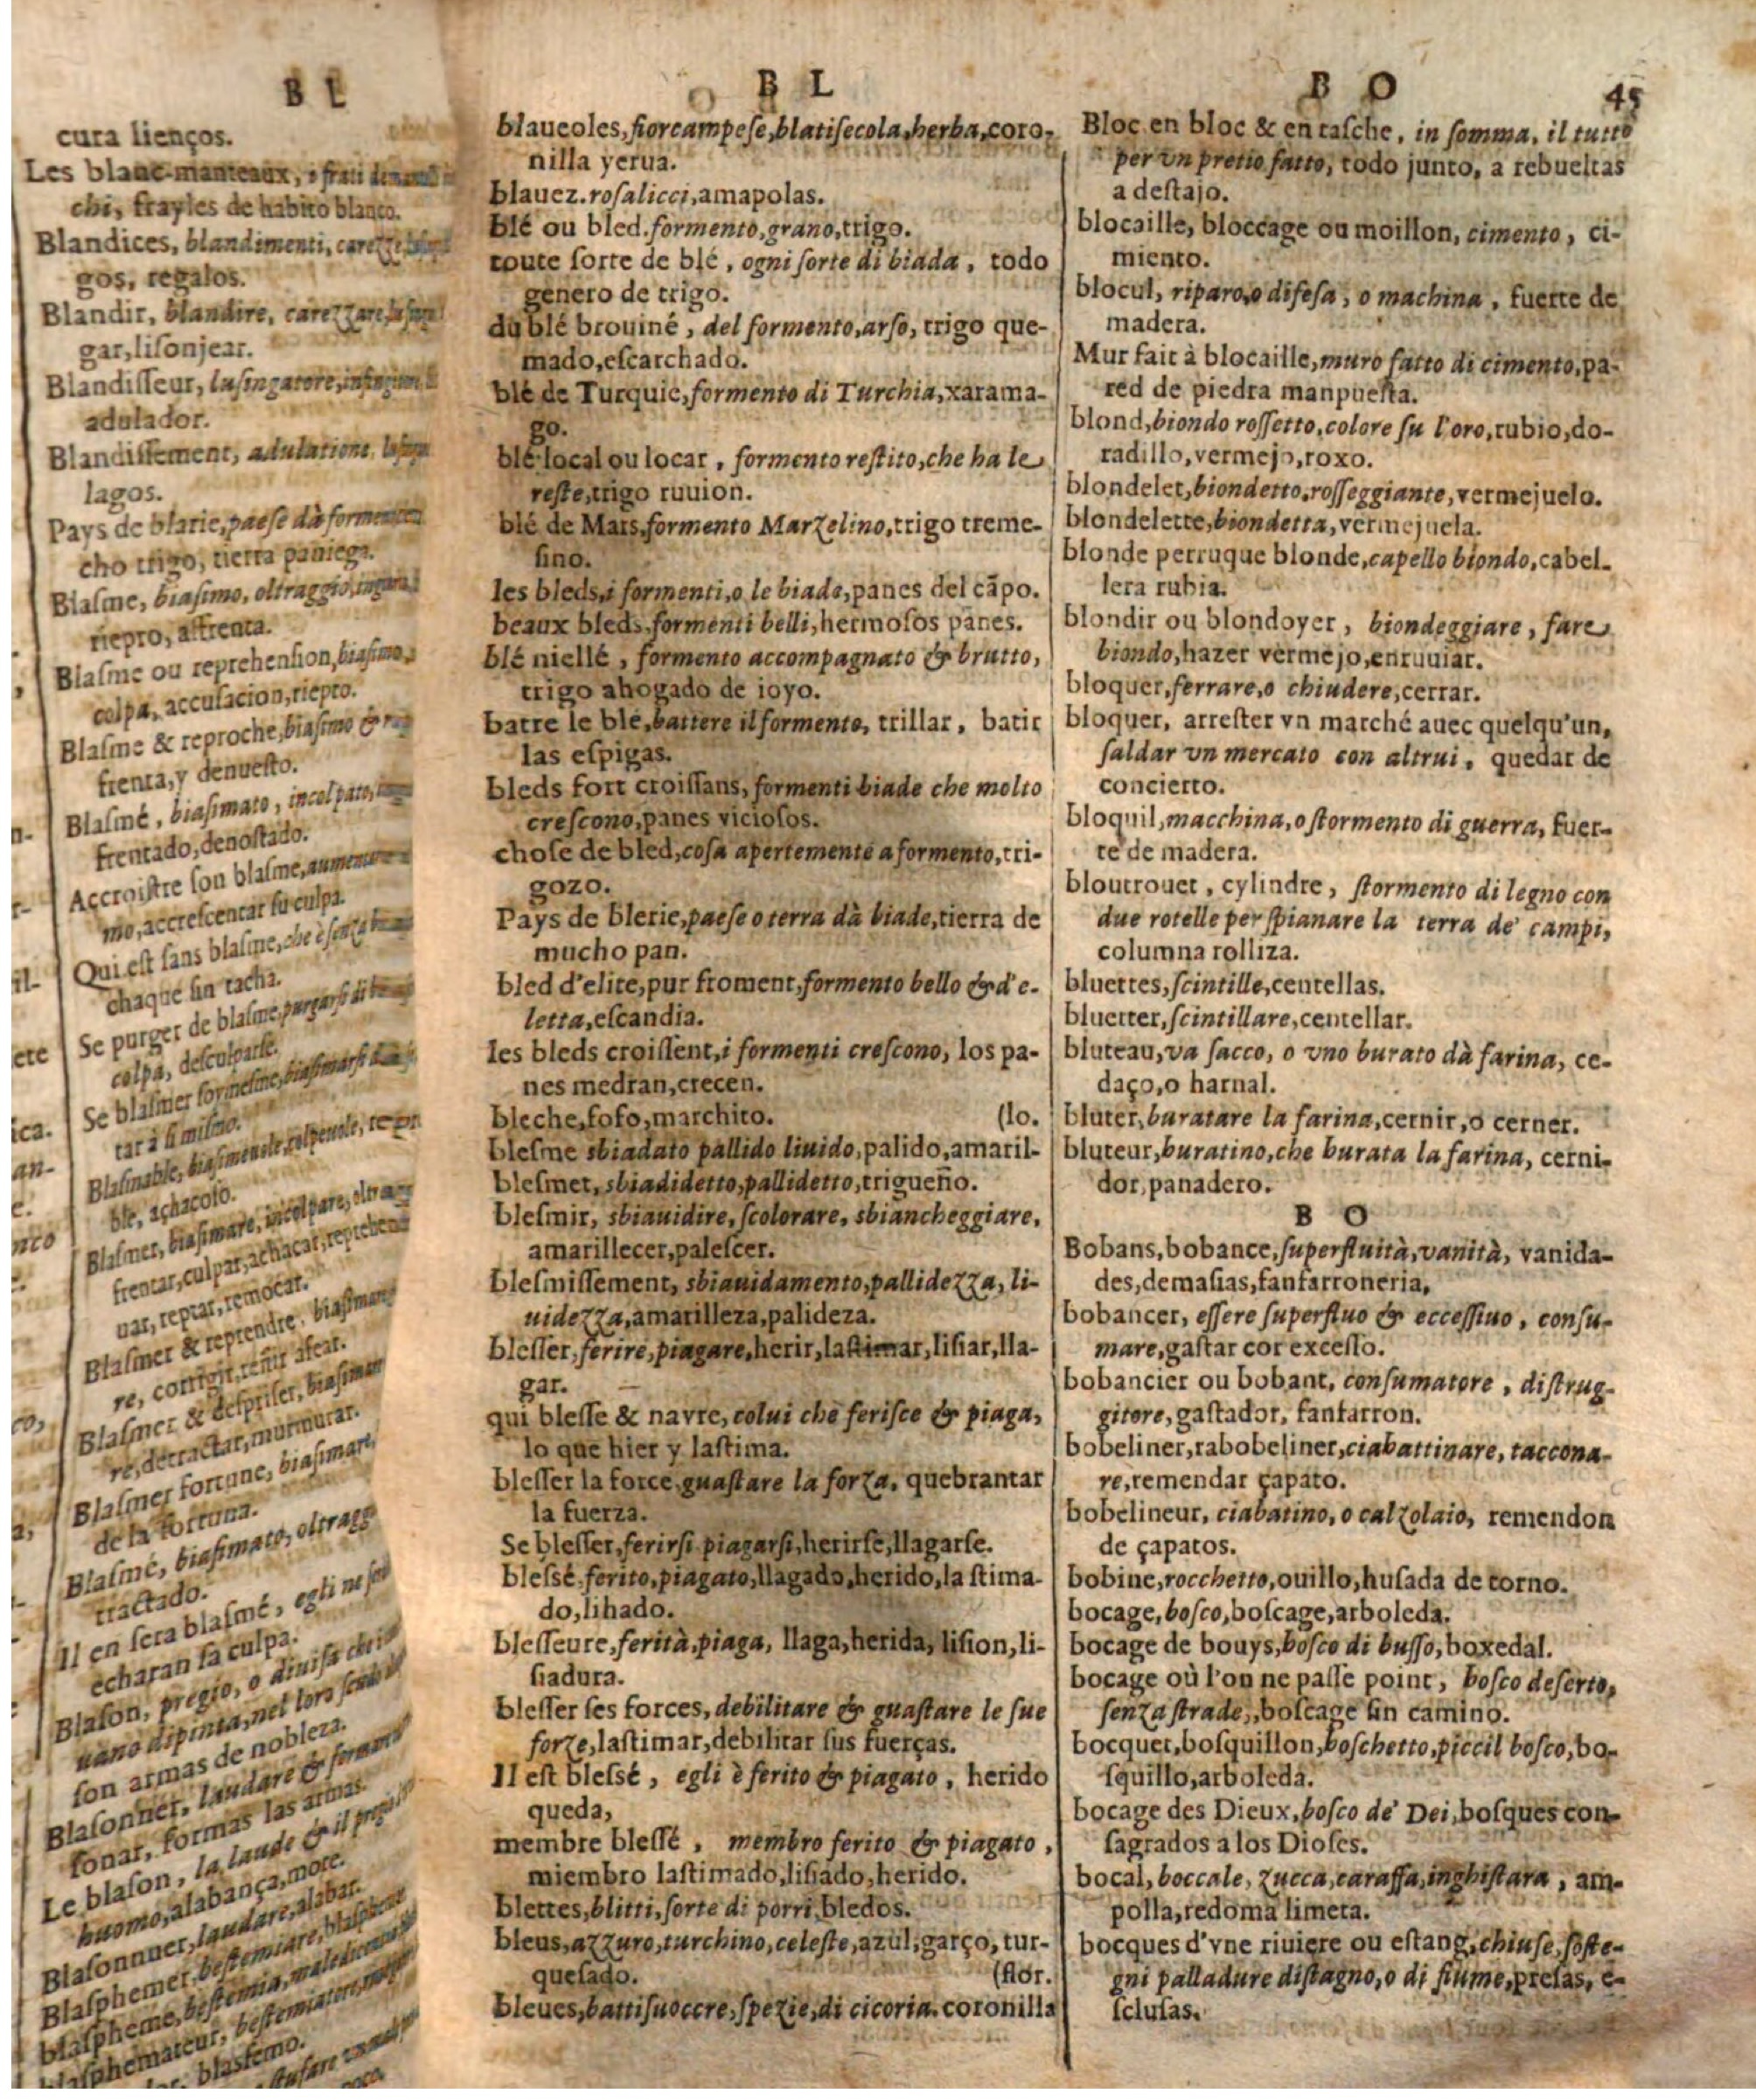 B L
cura lienços.
Les blanc-manteaux, i frati
chi, frayles de habito blanco.
Blandices, blandimenti, carezze
gos, regalos.
Blandir, blandire, carezzare,
gar,lisonjear.
Blandiſſeur, luſingatore,
adulador.
Blandiſſement, adulatione,
lagos.
Pays de blarie,paeſe dà
cho trigo, tierra paniega.
Blaſme, biaſimo, oltraggio,
riepro, affrenta.
Blaſme ou reprehenſion,biaſimo,
colpa, accuſacion,riepto.
Blaſme & reproche,biaſimo &
frenta,y denueſto.
Blaſmé, biaſimato, incolpato,
frentado,denoſtado.
Accroiſtre ſon blaſme,
mo,accreſcentar ſu culpa.
Qui eſt ſans blaſme,che è ſenza
chaque ſin tacha.
Se purger de blaſme,purgarſi di
colpa, deſculparſe.
Se blaſmer
tar à ſi miſmo.
Blaſmable,
ble, achacoſo.
Blaſmer, biaſimare, incolpare,
frentar,culpar,achacar,
uar, reptar,remocar.
Blaſmer & reprendre, biaſimare
re, corrigir,
Blaſmer & deſpriſer, biaſimar
re,detractar,murmurar.
Blaſmer fortune, biaſimare,
de la fortuna.
Blaſmé, biaſimato,
tractado.
Il en ſera blaſmé, egli ne
echaran ſa culpa.
Blaſon, pregio, o diuiſa
uano dipinta,nel loro
ſon armas de nobleza.
Blaſonner, laudare &
ſonar, formas las armas.
Le blaſon, la laude & il
huomo,alabança,mote.
Blaſonnuer,laudare,alabar.
Blaſphemer,beſtemiare,
blaſpheme,beſtemia,
blaſphemateur, beſtemiatore,
blasfemo.
B L
blaueoles,fiorcampeſe,blatiſecola,herba,coro-
nilla yerua.
blauez.roſalicci,amapolas.
blé ou bled.formento,grano,trigo.
toute ſorte de blé, ogni ſorte di biada, todo
genero de trigo.
du blé brouiné, del formento,arſo, trigo que-
mado,eſcarchado.
blé de Turquie,formento di Turchia,xarama-
go.
blé local ou locar, formento reſtito,che ha le
reſte,trigo ruuion.
blé de Mars,formento Marzelino,trigo treme-
ſino.
les bleds,i formenti,o le biade,panes del cãpo.
beaux bleds,formenti belli,hermoſos panes.
blé niellé, formento accompagnato & brutto,
trigo ahogado de ioyo.
batre le blé,battere il formento, trillar, batir
las eſpigas.
bleds fort croiſſans, formenti biade che molto
creſcono,panes vicioſos.
choſe de bled,coſa apertemente a formento,tri-
gozo.
Pays de blerie,paeſe o terra dà biade,tierra de
mucho pan.
bled d'elite,pur froment,formento bello & d'e-
letta,eſcandia.
les bleds croiſſent,i formenti creſcono, los pa-
nes medran,crecen.
bleche,fofo,marchito. (lo.
bleſme sbiadato pallido liuido,palido,amaril-
bleſmet, sbiadidetto,pallidetto,trigueño.
bleſmir, sbiauidire, ſcolorare, sbiancheggiare,
amarillecer,paleſcer.
bleſmiſſement, sbiauidamento,pallidezza, li-
uidezza,amarilleza,palideza.
bleſſer,ferire,piagare,herir,laſtimar,liſiar,lla-
gar.
qui bleſſe & navre, colui che feriſce & piaga,
lo que hier y laſtima.
bleſſer la force,guaſtare la forza, quebrantar
la fuerza.
Se bleſſer,ferirſi piagarſi,herirſe,llagarſe.
bleſsé,ferito,piagato,llagado,herido,la ſtima-
do,liſiado.
bleſſeure,ferità,piaga, llaga,herida, liſion,li-
ſiadura.
bleſſer ſes forces, debilitare & guaſtare le ſue
forze,laſtimar,debilitar ſus fuerças.
Il eſt bleſsé, egli è ferito & piagato, herido
queda,
membre bleſſé, membro ferito & piagato,
miembro laſtimado,liſiado,herido.
blettes,blitti,ſorte di porri,bledos.
bleus,azzuro,turchino,celeſte,azul,garço, tur-
queſado. (flor.
bleues,battiſuoccre,ſpezie,di cicoria.coronilla
B O 45
Bloc en bloc & en taſche, in ſomma, il tutto
per vn pretio fatto, todo junto, a rebueltas
a deſtajo.
blocaille, bloccage ou moillon, cimento, ci-
miento.
blocul, riparo,o difeſa, o machina, fuerte de
madera.
Mur fait à blocaille,muro fatto di cimento,pa-
red de piedra manpueſta.
blond,biondo roſſetto,colore ſu l'oro,rubio,do-
radillo,vermejo,roxo.
blondelet,biondetto,roſſeggiante,vermejuelo.
blondelette,biondetta,vermejuela.
blonde perruque blonde,capello biondo,cabel-
lera rubia.
blondir ou blondoyer, biondeggiare, fare
biondo,hazer vermejo,enruuiar.
bloquer,ferrare,o chiudere,cerrar.
bloquer, arreſter vn marché auec quelqu'un,
ſaldar vn mercato con altrui, quedar de
concierto.
bloquil,macchina,o ſtormento di guerra, fuer-
te de madera.
bloutrouet, cylindre, ſtormento di legno con
due rotelle per ſpianare la terra de' campi,
columna rolliza.
bluettes,ſcintille,centellas.
bluetter,ſcintillare,centellar.
bluteau,va ſacco, o vno burato dà farina, ce-
daço,o harnal.
bluter,buratare la farina,cernir,o cerner.
bluteur,buratino,che burata la farina, cerni-
dor,panadero.
B O
Bobans,bobance,ſuperfluità,vanità, vanida-
des,demaſias,fanfarroneria,
bobancer, eſſere ſuperfluo & ecceſſiuo, conſu-
mare,gaſtar cor exceſſo.
bobancier ou bobant, conſumatore, diſtrug-
gitore,gaſtador, fanfarron.
bobeliner,rabobeliner,ciabattinare, taccona-
re,remendar çapato.
bobelineur, ciabatino,o calzolaio, remendon
de çapatos.
bobine,rocchetto,ouillo,huſada de torno.
bocage,boſco,boſcage,arboleda.
bocage de bouys,boſco di buſſo,boxedal.
bocage où l'on ne paſſe point, boſco deſerto,
ſenza ſtrade,,boſcage ſin camino.
bocquet,boſquillon,boſchetto,piccil boſco,bo-
ſquillo,arboleda.
bocage des Dieux,boſco de' Dei,boſques con-
ſagrados a los Dioſes.
bocal, boccale, zucca,caraffa,inghiſtara, am-
polla,redoma limeta.
bocques d'vne riuiere ou eſtang,chiuſe,ſoſte-
gni palladure diſtagno,o di fiume,preſas, e-
ſcluſas.